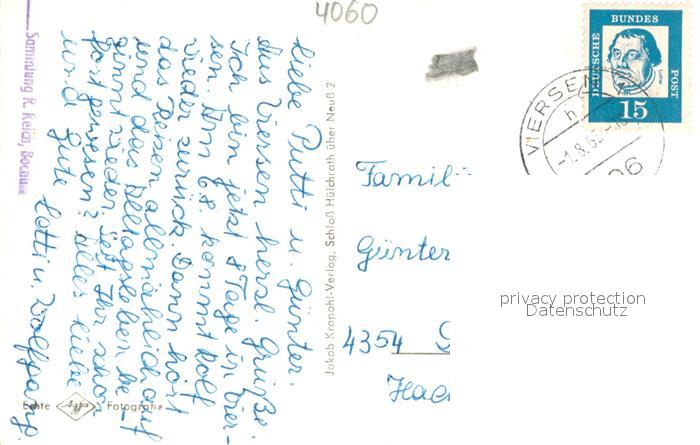 4060
Sammlung R. Keian, Bocau
Liebe Putti u. Günter.
Aus Viersen herzl. Grüße.
Ich bin jetzt 8 Tage in Vier-
sen. Am 6.8. kommt Rolf
wieder zurück. Dann hört
das Reisen allmählich auf
und das Alltagsleben be-
ginnt wieder. Seit Ihr schon
fort gewesen? Alles Liebe
und Gute
Lotti u. Wolfgang.
Echte Agfa Fotografie
Jakob Krapohl-Verlag, Schloß Hülchrath über Neuß 2
DEUTSCHE BUNDES POST
Luther
15
VIERSEN
h
-1.8.6
Famil
Günter
4354
Hac
privacy protection
Datenschutz